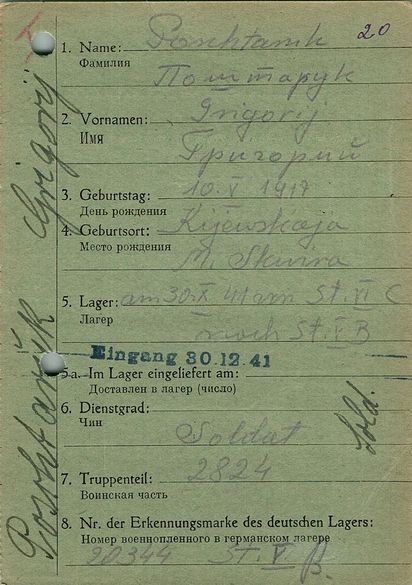 20
1. Name: Poschtaruk
Фамилия Поштарук
2. Vornamen: Grigorij
Имя Григорий
3. Geburtstag: 10. V 1917
День рождения
4. Geburtsort: Kijewskaja
Место рождения M. Skwira
5. Lager: am 30.X 41 am St. VI C
Лагер nach St. V B
Eingang 30.12.41
5a. Im Lager eingeliefert am:
Доставлен в лагер (число)
6. Dienstgrad:
Чин Soldat
7. Truppenteil: 2824
Воинская часть
8. Nr. der Erkennungsmarke des deutschen Lagers:
Номер военнопленного в германском лагере
90344 St. V B
Poschtaruk Grigorij
Sold.